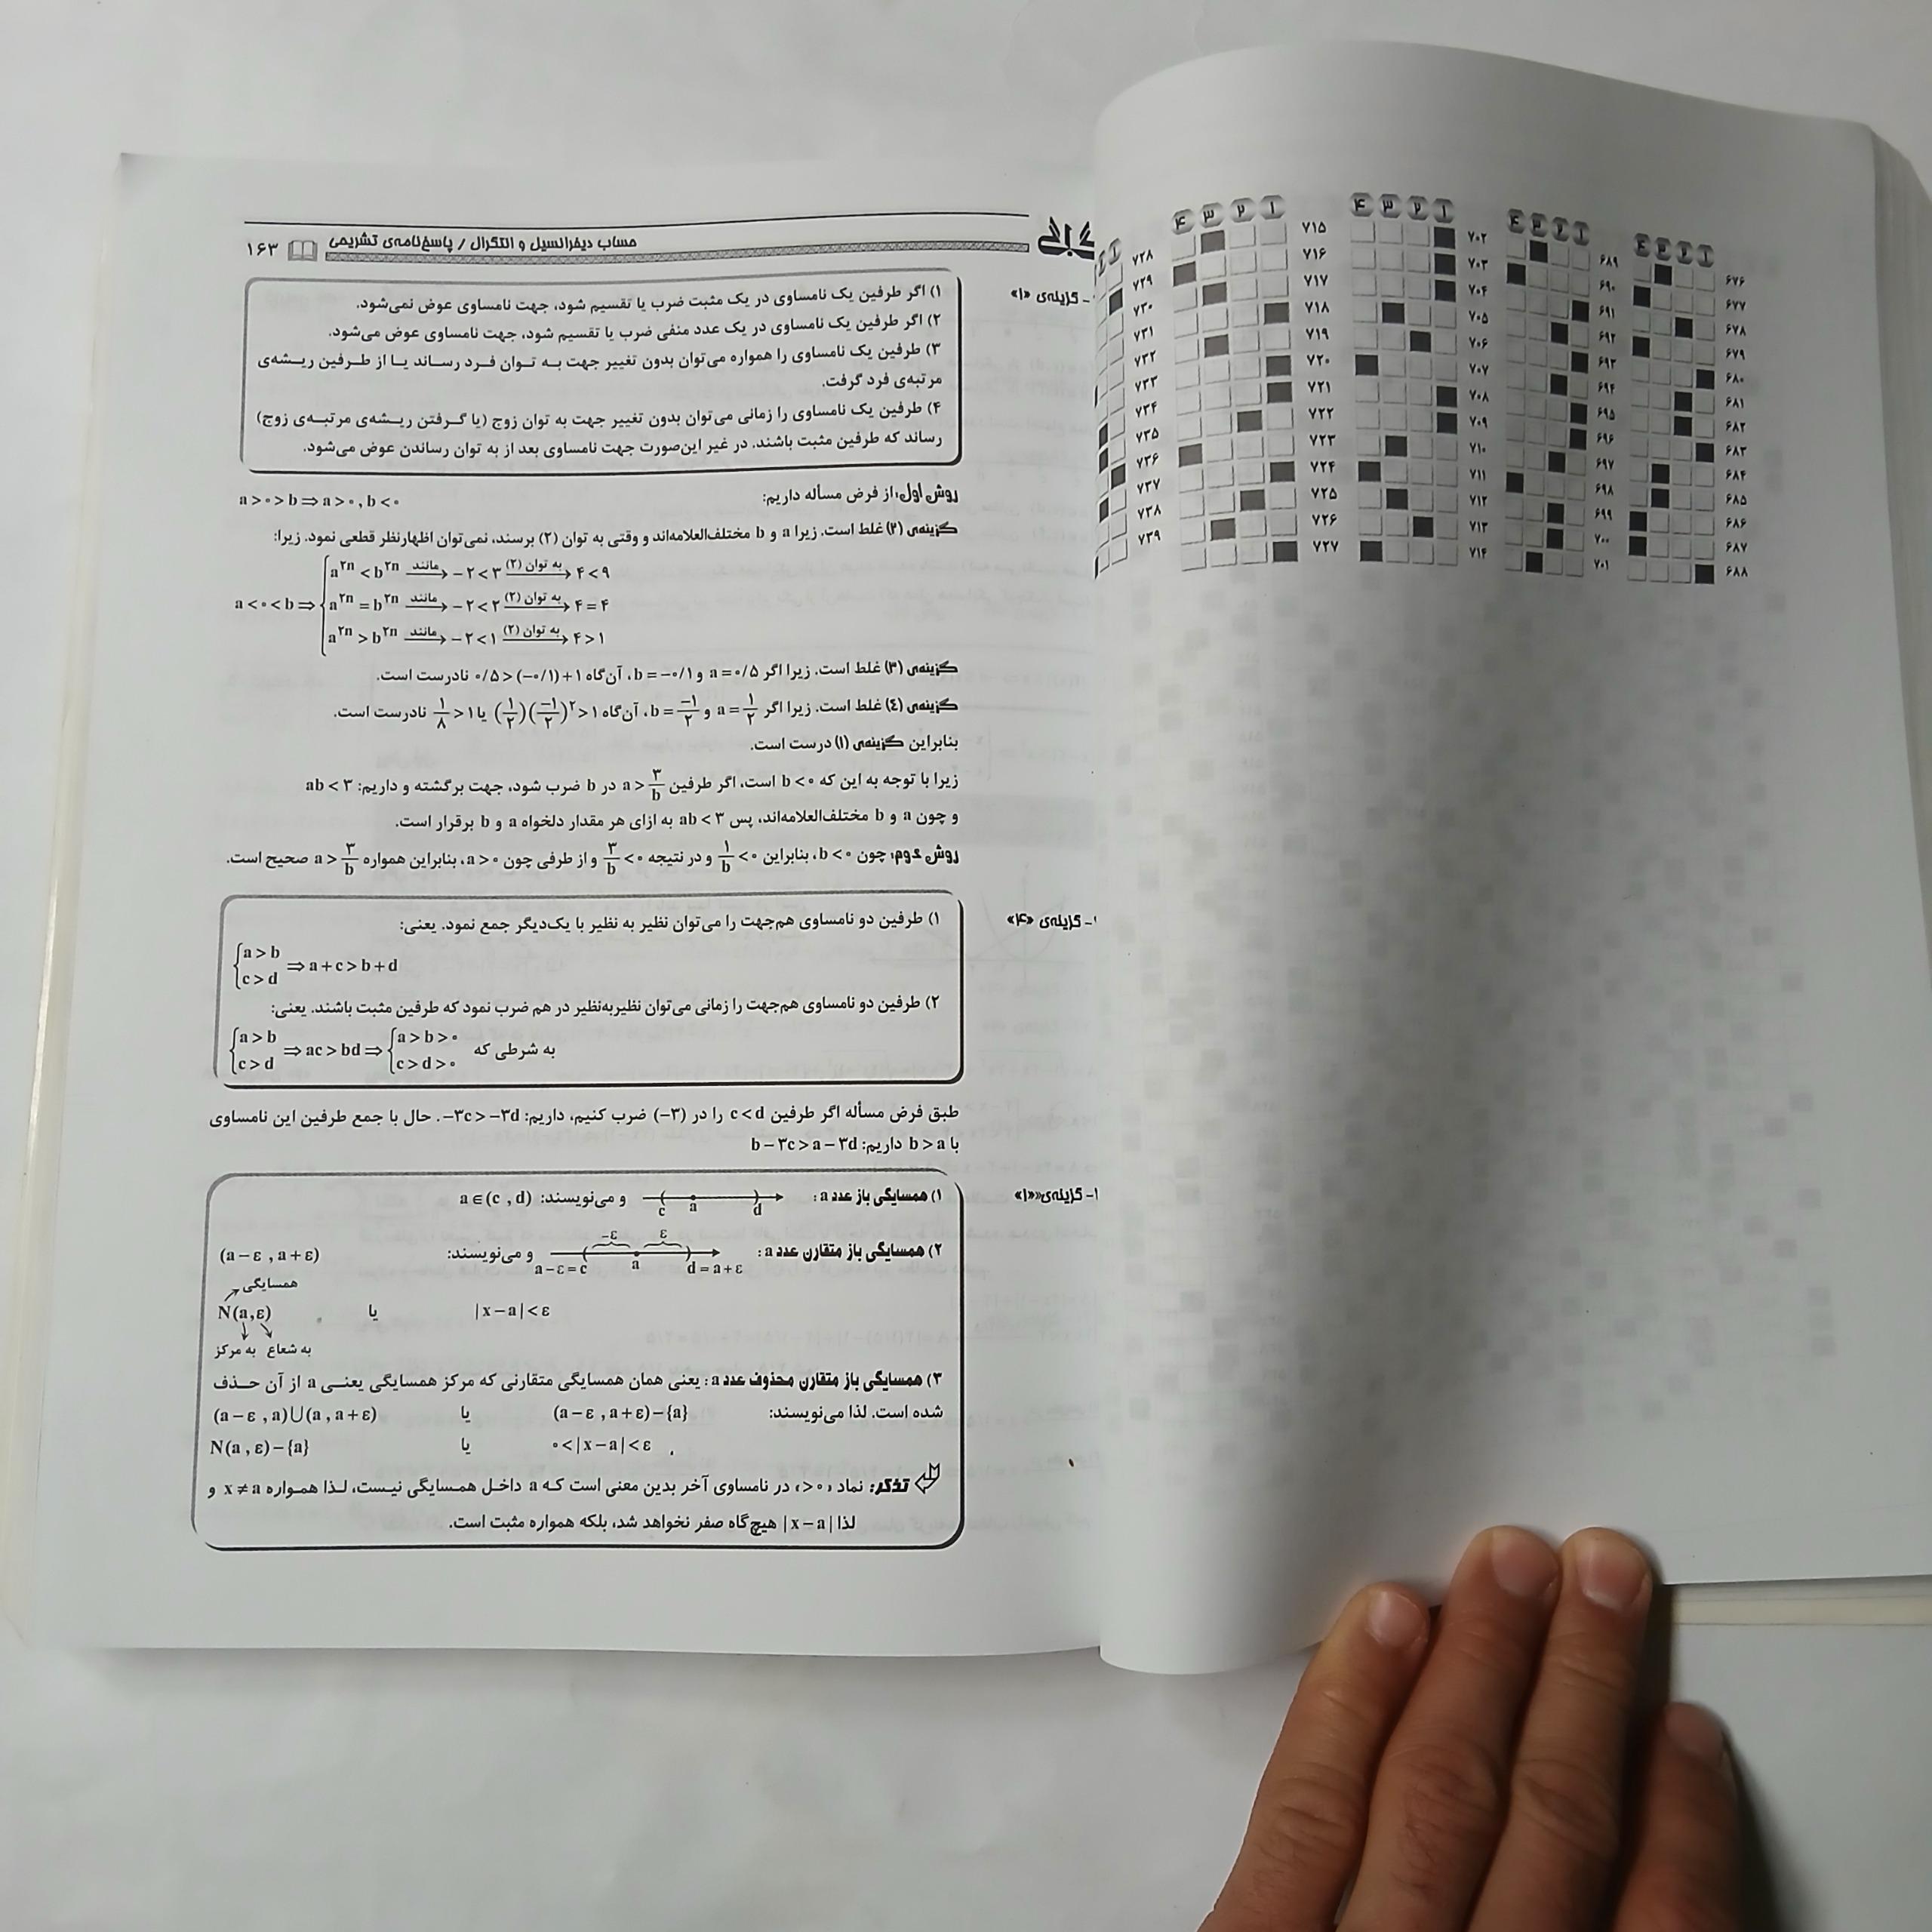 حساب دیفرانسیل و انتگرال / پاسخ‌نامه‌ی تشریحی ۱۶۳
گزینه‌ی «۱»
۱) اگر طرفین یک نامساوی در یک مثبت ضرب یا تقسیم شود، جهت نامساوی عوض نمی‌شود.
۲) اگر طرفین یک نامساوی در یک عدد منفی ضرب یا تقسیم شود، جهت نامساوی عوض می‌شود.
۳) طرفین یک نامساوی را همواره می‌توان بدون تغییر جهت به توان فرد رساند یا از طرفین ریشه‌ی
مرتبه‌ی فرد گرفت.
۴) طرفین یک نامساوی را زمانی می‌توان بدون تغییر جهت به توان زوج (یا گرفتن ریشه‌ی مرتبه‌ی زوج)
رساند که طرفین مثبت باشند. در غیر این‌صورت جهت نامساوی بعد از به توان رساندن عوض می‌شود.
روش اول: از فرض مسأله داریم: a > ۰ > b ⇒ a > ۰ , b < ۰
گزینه‌ی (۲) غلط است. زیرا a و b مختلف‌العلامه‌اند و وقتی به توان (۲) برسند، نمی‌توان اظهارنظر قطعی نمود. زیرا:
a < ۰ < b ⇒
a^۲n < b^۲n مانند → −۲ < ۳ به توان (۲) → ۴ < ۹
a^۲n = b^۲n مانند → −۲ < ۲ به توان (۲) → ۴ = ۴
a^۲n > b^۲n مانند → −۲ < ۱ به توان (۲) → ۴ > ۱
گزینه‌ی (۳) غلط است. زیرا اگر a = ۰/۵ و b = −۰/۱، آن‌گاه ۰/۵ > (−۰/۱) + ۱ نادرست است.
گزینه‌ی (٤) غلط است. زیرا اگر a = ۱/۲ و b = −۱/۲، آن‌گاه (۱/۲)(−۱/۲)^۲ > ۱ یا ۱/۸ > ۱ نادرست است.
بنابراین گزینه‌ی (۱) درست است.
زیرا با توجه به این که b < ۰ است، اگر طرفین a > ۳/b در b ضرب شود، جهت برگشته و داریم: ab < ۳
و چون a و b مختلف‌العلامه‌اند، پس ab < ۳ به ازای هر مقدار دلخواه a و b برقرار است.
روش دوم: چون b < ۰، بنابراین ۱/b < ۰ و در نتیجه ۳/b < ۰ و از طرفی چون a > ۰، بنابراین همواره a > ۳/b صحیح است.
گزینه‌ی «۴»
۱) طرفین دو نامساوی هم‌جهت را می‌توان نظیر به نظیر با یک‌دیگر جمع نمود. یعنی:
{a > b
c > d ⇒ a + c > b + d
۲) طرفین دو نامساوی هم‌جهت را زمانی می‌توان نظیربه‌نظیر در هم ضرب نمود که طرفین مثبت باشند. یعنی:
{a > b
c > d ⇒ ac > bd ⇒ {a > b > ۰
c > d > ۰ به شرطی که
طبق فرض مسأله اگر طرفین c < d را در (−۳) ضرب کنیم، داریم: −۳c > −۳d. حال با جمع طرفین این نامساوی
با b > a داریم: b − ۳c > a − ۳d
گزینه‌ی «۱»
۱) همسایگی باز عدد a: c a d و می‌نویسند: a ∈ (c , d)
۲) همسایگی باز متقارن عدد a: −ε ε a − ε = c a d = a + ε و می‌نویسند: (a − ε , a + ε)
همسایگی
|x − a| < ε یا N(a,ε)
به شعاع به مرکز
۳) همسایگی باز متقارن محذوف عدد a: یعنی همان همسایگی متقارنی که مرکز همسایگی یعنی a از آن حذف
شده است. لذا می‌نویسند: (a − ε , a + ε) − {a} یا (a − ε , a) ∪ (a , a + ε)
۰ < |x − a| < ε یا N(a , ε) − {a}
تذکر: نماد «۰<» در نامساوی آخر بدین معنی است که a داخل همسایگی نیست، لذا همواره x ≠ a و
لذا |x − a| هیچ‌گاه صفر نخواهد شد، بلکه همواره مثبت است.
۱ ۲ ۳ ۴
۶۷۶
۶۷۷
۶۷۸
۶۷۹
۶۸۰
۶۸۱
۶۸۲
۶۸۳
۶۸۴
۶۸۵
۶۸۶
۶۸۷
۶۸۸
۱ ۲ ۳ ۴
۶۸۹
۶۹۰
۶۹۱
۶۹۲
۶۹۳
۶۹۴
۶۹۵
۶۹۶
۶۹۷
۶۹۸
۶۹۹
۷۰۰
۷۰۱
۱ ۲ ۳ ۴
۷۰۲
۷۰۳
۷۰۴
۷۰۵
۷۰۶
۷۰۷
۷۰۸
۷۰۹
۷۱۰
۷۱۱
۷۱۲
۷۱۳
۷۱۴
۱ ۲ ۳ ۴
۷۱۵
۷۱۶
۷۱۷
۷۱۸
۷۱۹
۷۲۰
۷۲۱
۷۲۲
۷۲۳
۷۲۴
۷۲۵
۷۲۶
۷۲۷
۱
۷۲۸
۷۲۹
۷۳۰
۷۳۱
۷۳۲
۷۳۳
۷۳۴
۷۳۵
۷۳۶
۷۳۷
۷۳۸
۷۳۹